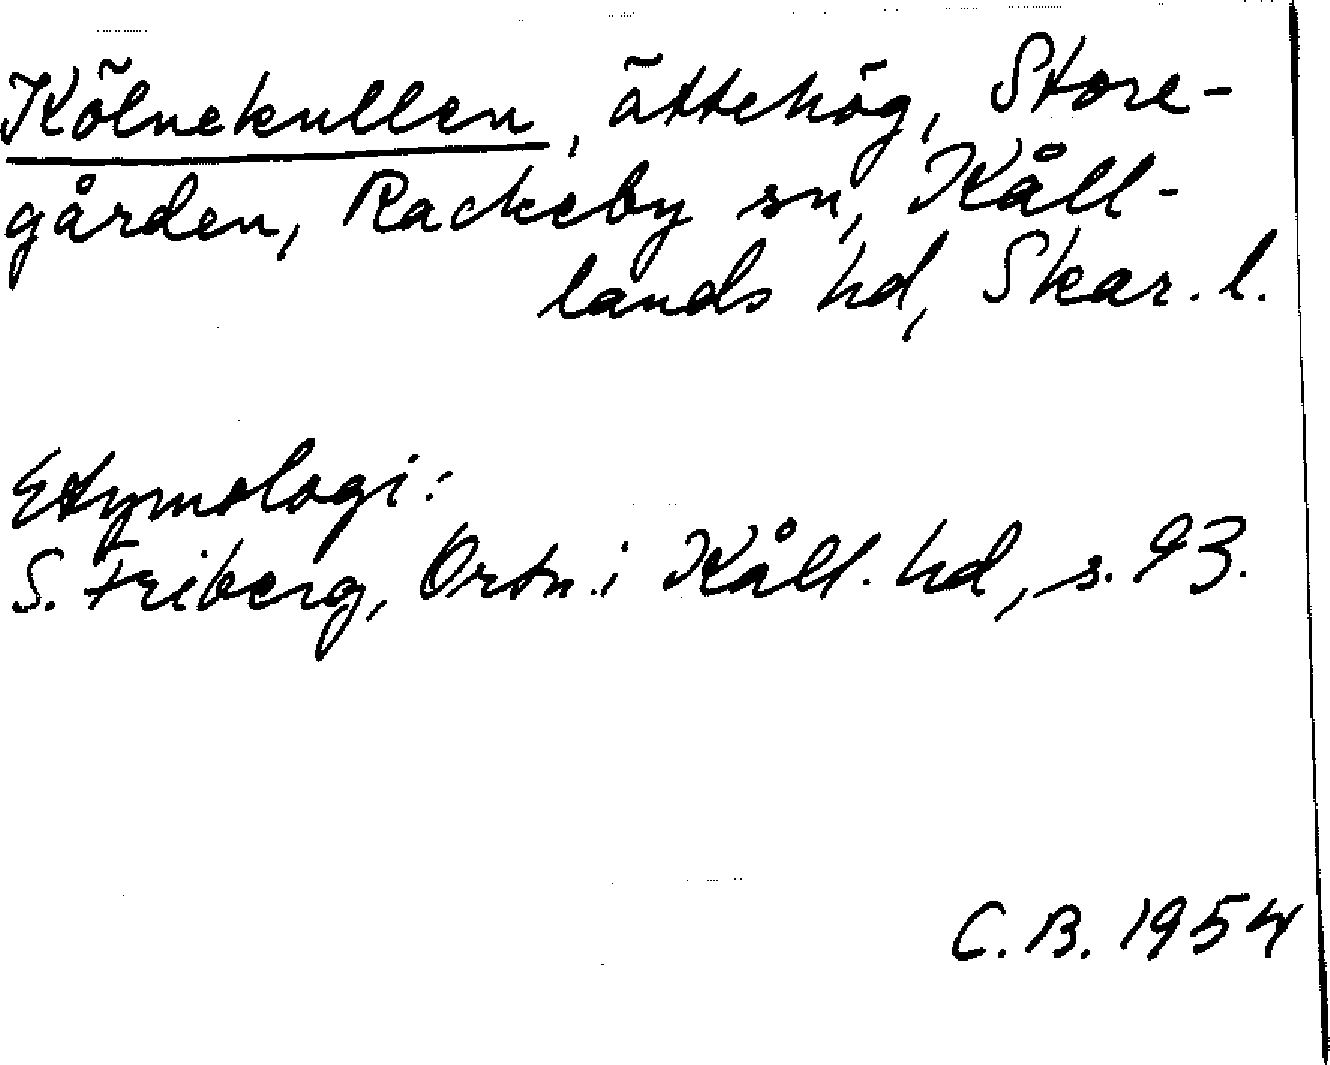 Kölnekullen, ättehög, Store-
gården, Rackeby sn, Kåll-
lands hd, Skar. l.
Etymologi:
S. Friberg, Ortn. i Kåll. hd, s. 93.
C. B. 1954